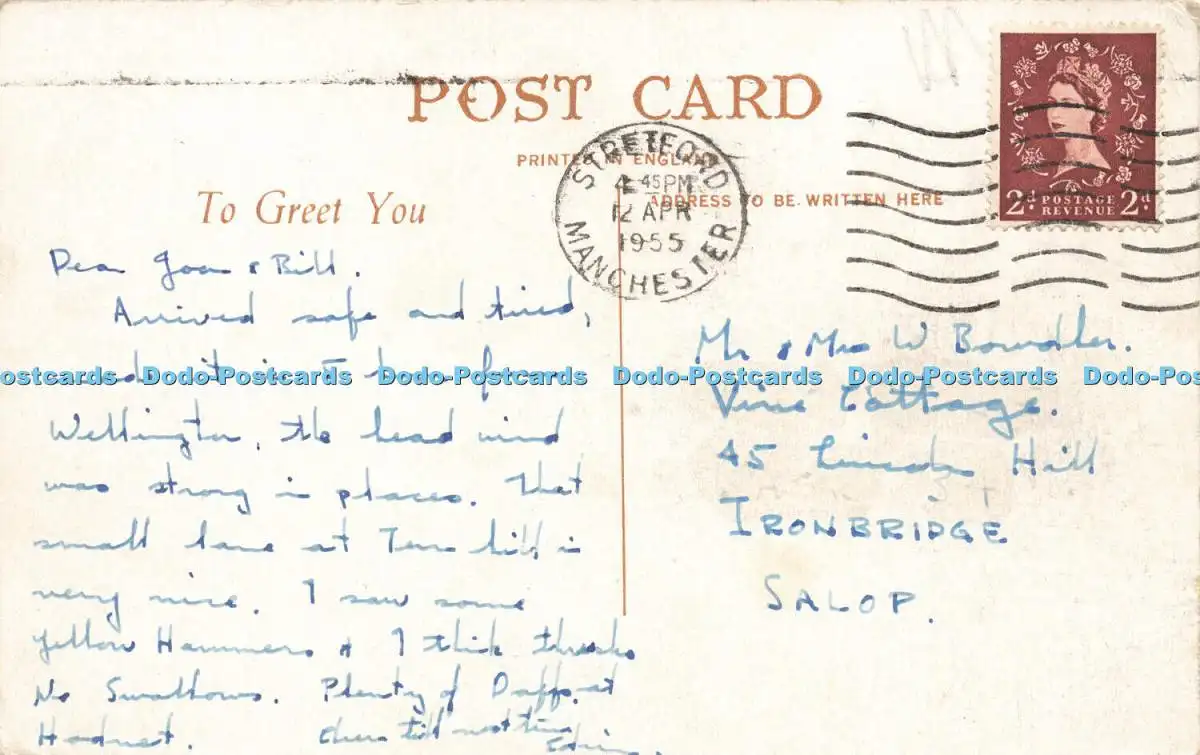 POST CARD
PRINTED IN ENGLAND
ADDRESS TO BE WRITTEN HERE
STRETFORD
MANCHESTER
4 45 PM
12 APR
1955
2d POSTAGE REVENUE 2d
To Greet You
Dear Joan & Bill.
Arrived safe and tired,
Wellington, the head wind
was strong in places. That
small lane at Tern hill is
very nice. I saw some
Yellow Hammers & I think thrushes
No Swallows. Plenty of Daffs. at
Hodnet. Cheers till next time
Mr & Mrs W Bowdler.
Vine Cottage.
45 Lincoln Hill
IRONBRIDGE
SALOP.
Dodo-Postcards Dodo-Postcards Dodo-Postcards Dodo-Postcards